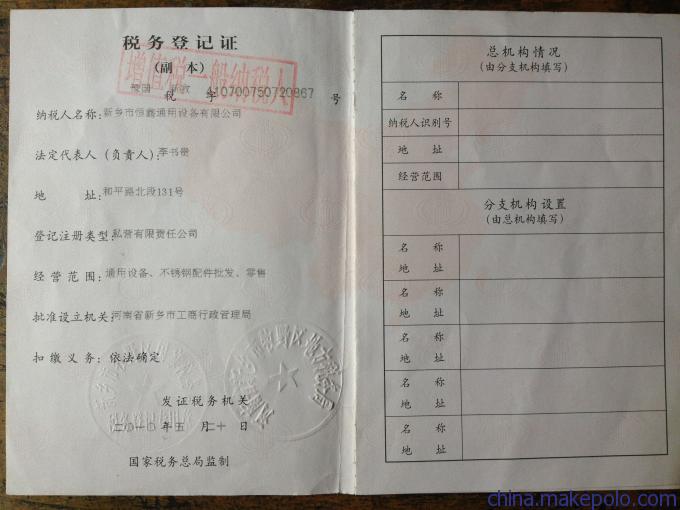 税务登记证
(副 本)
增值税一般纳税人
税 字 410700750720867 号
纳税人名称:新乡市恒鑫通用设备有限公司
法定代表人(负责人):李书贵
地 址:和平路北段131号
登记注册类型:私营有限责任公司
经营范围:通用设备、不锈钢配件批发、零售
批准设立机关:河南省新乡市工商行政管理局
扣缴义务:依法确定
发证税务机关
二〇一〇年五月二十日
国家税务总局监制
总机构情况
(由分支机构填写)
名 称
纳税人识别号
地 址
经营范围
分支机构设置
(由总机构填写)
名 称
地 址
名 称
地 址
名 称
地 址
名 称
地 址
名 称
地 址
china.makepolo.com